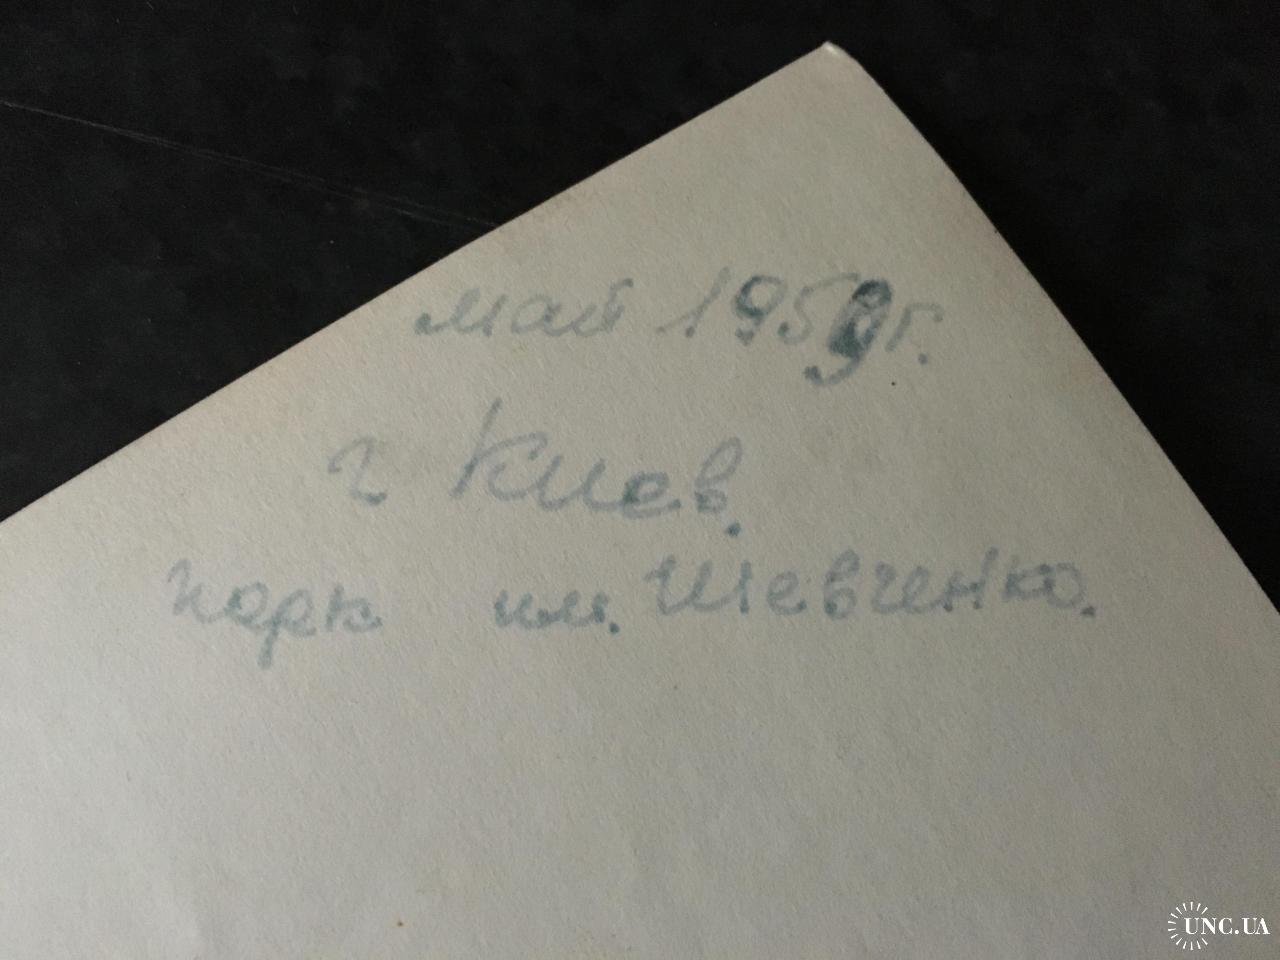 май 1959г.
г Киев.
парк им. Шевченко.
UNC.UA